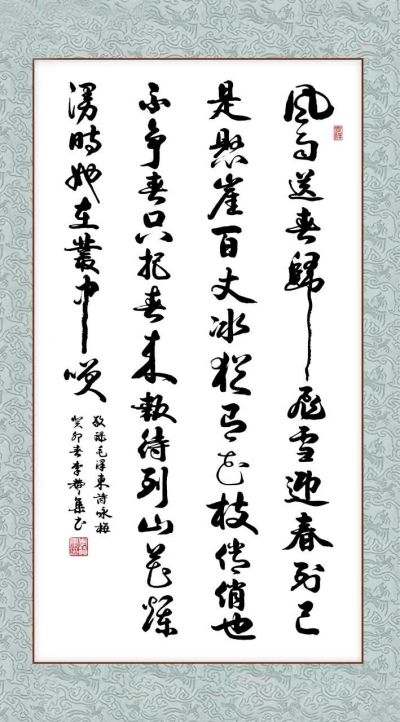 風雨送春歸飛雪迎春到已
是懸崖百丈冰犹有花枝俏俏也
不争春只把春来報待到山花爛
漫時她在叢中咲
敬録毛澤東詩咏梅
癸卯春李集书